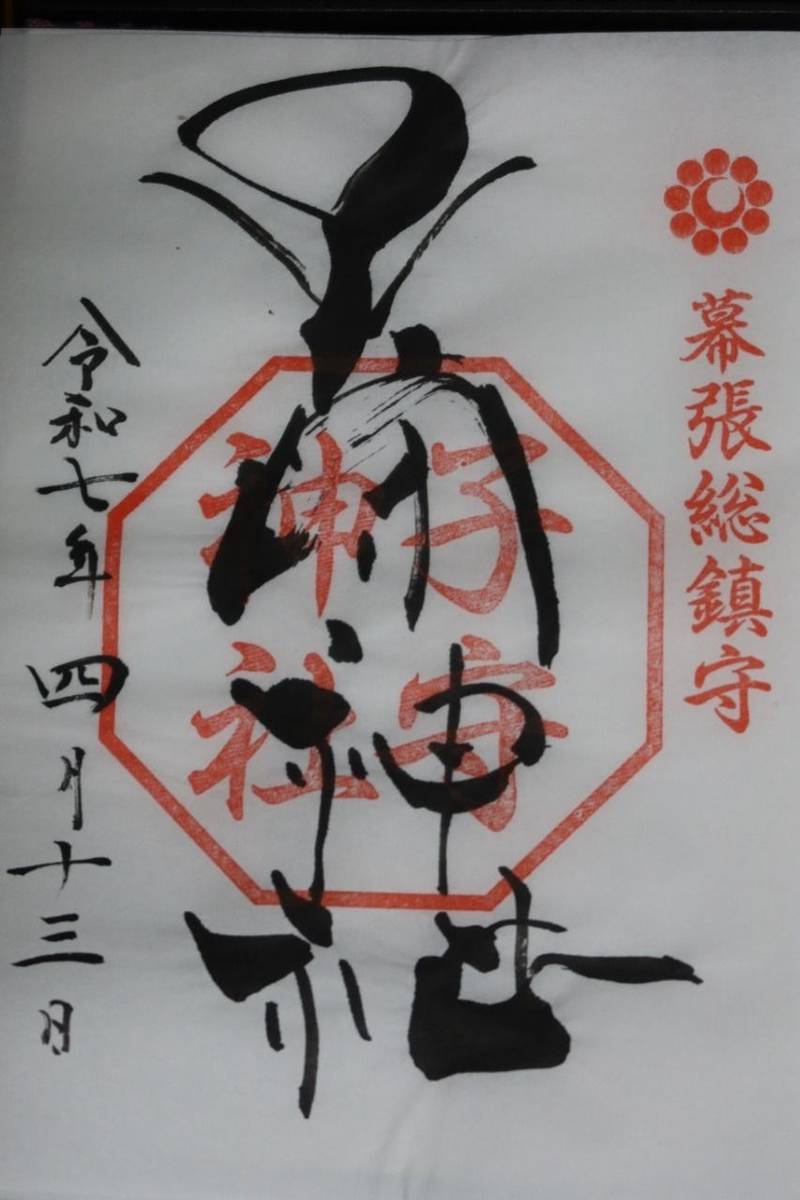 幕張総鎮守
子守神社
子守神社
令和七年四月十三日